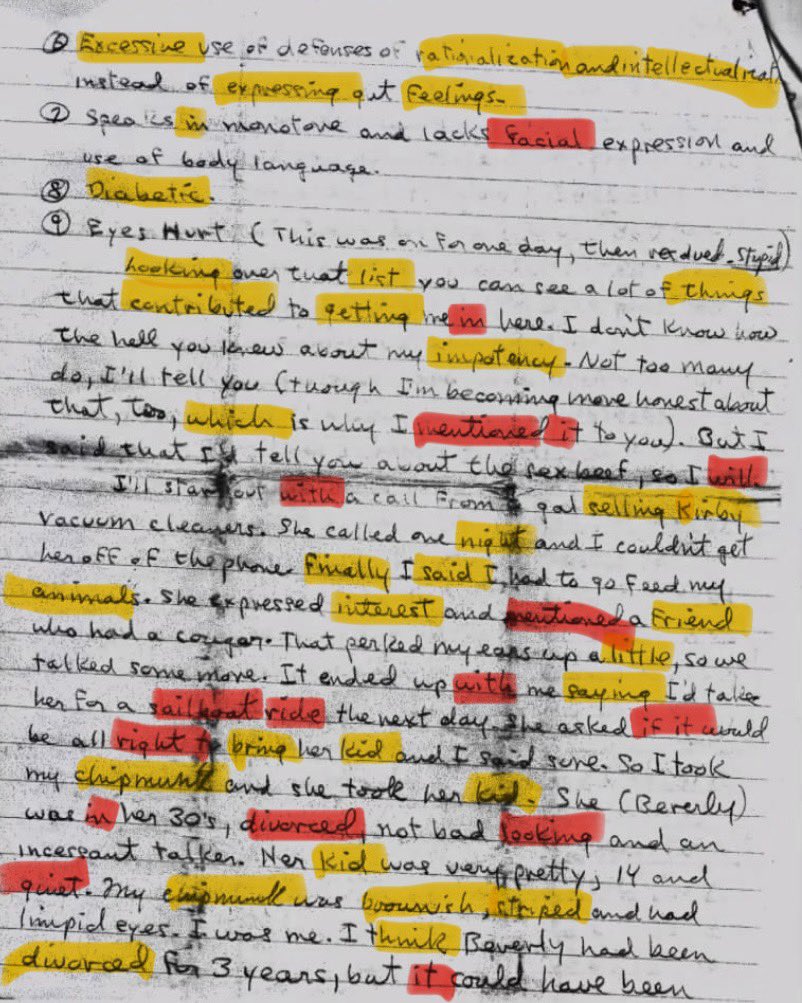 ⑥ Excessive use of defenses of rationalization and intellectualizat
instead of expressing gut feelings.
⑦ Speaks in monotone and lacks facial expression and
use of body language.
⑧ Diabetic.
⑨ Eyes Hurt (This was on for one day, then resolved. Stupid)
Looking over that list you can see a lot of things
that contributed to getting me in here. I don't know how
the hell you knew about my impotency. Not too many
do, I'll tell you (though I'm becoming more honest about
that, too, which is why I mentioned it to you). But I
said that I'd tell you about the sex beef, so I will.
I'll start out with a call from a gal selling Kirby
vacuum cleaners. She called one night and I couldn't get
her off of the phone. Finally I said I had to go feed my
animals. She expressed interest and mentioned a friend
who had a cougar. That perked my ears up a little, so we
talked some more. It ended up with me saying I'd take
her for a sailboat ride the next day. She asked if it would
be all right to bring her kid and I said sure. So I took
my chipmunk and she took her kid. She (Beverly)
was in her 30's, divorced, not bad looking and an
incessant talker. Her kid was very pretty, 14 and
quiet. My chipmunk was brownish, striped and had
limpid eyes. I was me. I think Beverly had been
divorced for 3 years, but it could have been